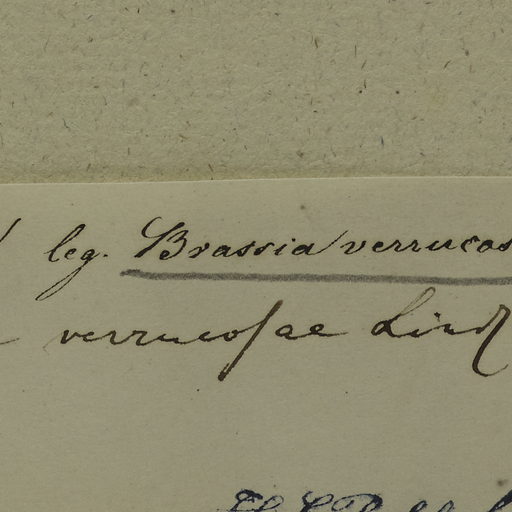 leg. Brassia verrucos
verrucosae Lindl